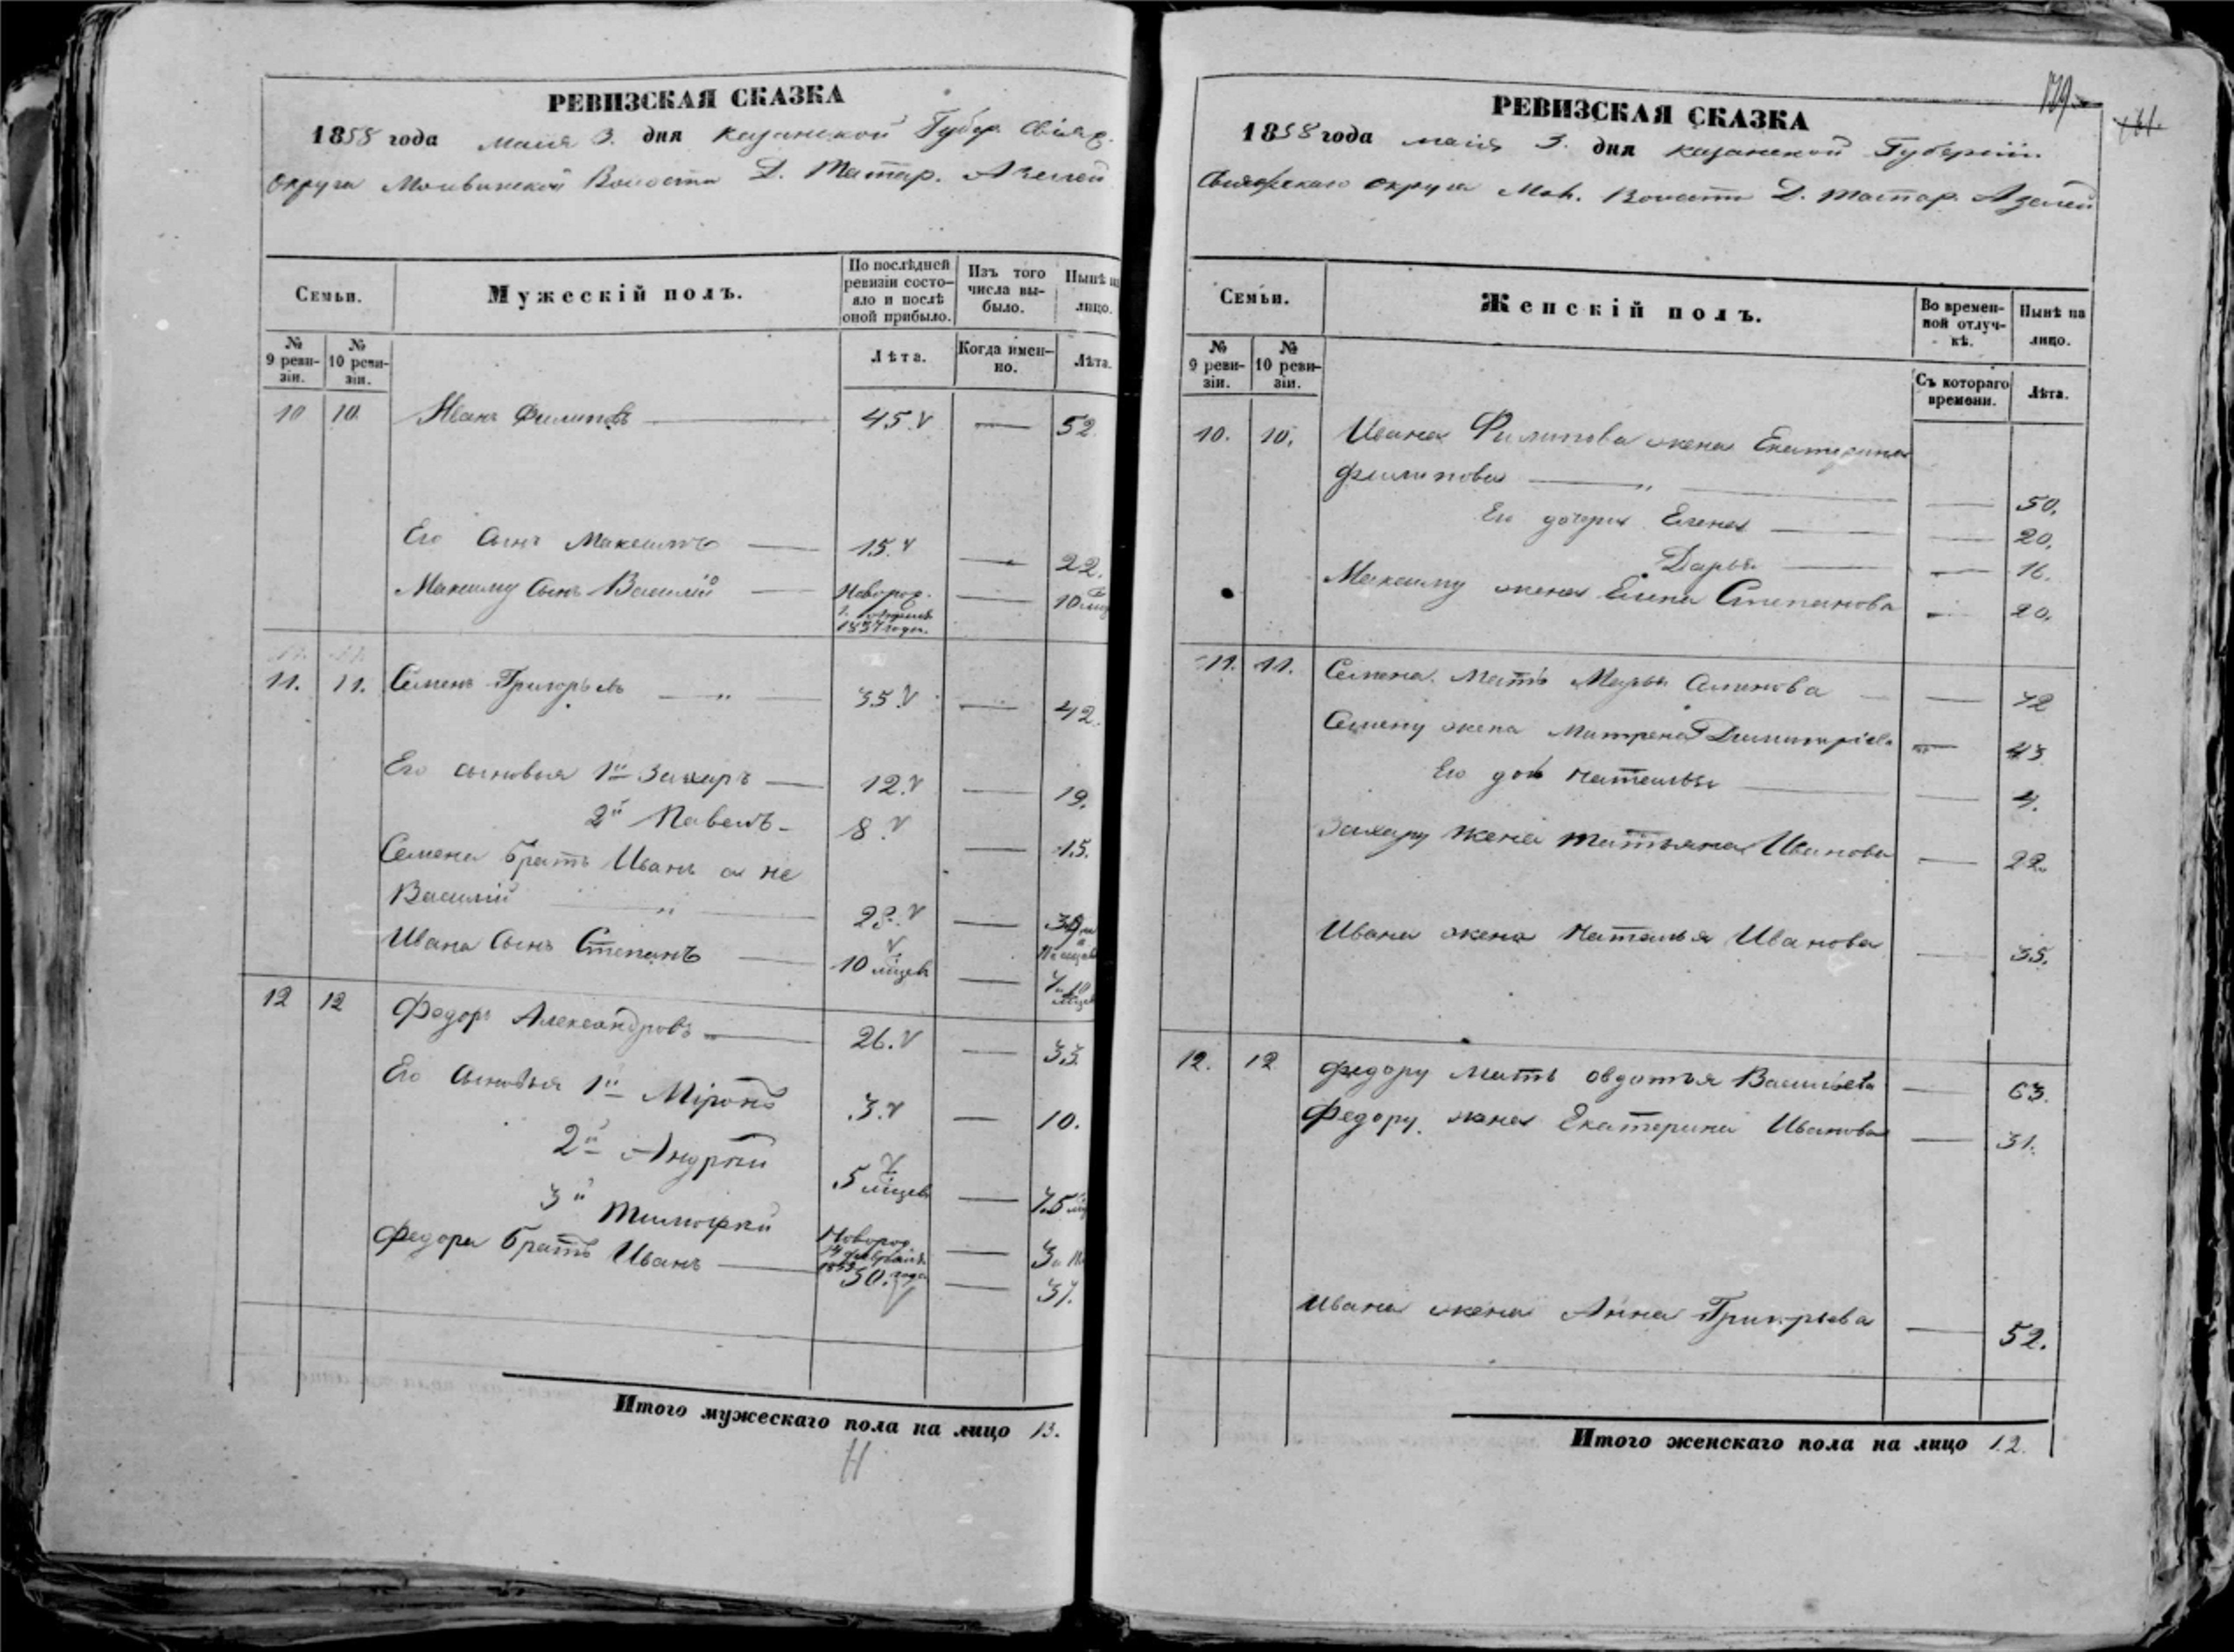 РЕВИЗСКАЯ СКАЗКА
1858 года маия 3. дня казанской Губер. Свіяж.
округа Молвинской Волости Д. Татар. Азелей
Семьи.
Мужескій полъ.
По послѣдней ревизіи состояло и послѣ оной прибыло.
Изъ того числа выбыло.
Нынѣ на лицо.
№ 9 ревизіи.
№ 10 ревизіи.
Лѣта.
Когда именно.
Лѣта.
10 10. Иванъ Филиповъ — 45. — 52.
Его сынъ Максимъ — 15. — 22.
Максиму сынъ Василій — Новорож. 1857 года. — 10 мѣц
11. 11. Семенъ Григорьевъ — „ — 35. — 42.
Его сыновья 1й Захаръ — 12. — 19.
2й Павелъ — 8. — 15.
Семена братъ Иванъ а не
Василій — „ —
Ивана сынъ Степанъ — 10 мѣцев — 7 и 10 мѣцев
12 12 Федоръ Александровъ — 26. — 33.
Его сыновья 1й Міронъ 3. — 10.
2й Андрей 5 мѣцев — 7. 5 мѣ
3й Тимофей Новорож 14 февраля года — 3 и
Федора братъ Иванъ — 30. — 37.
Итого мужескаго пола на лицо 13.
РЕВИЗСКАЯ СКАЗКА
1858 года маія 3. дня казанской Губерніи.
Свіяжскаго округа Мол. Волости Д. Татар. Азелей
Семьи.
Женскій полъ.
Во временной отлучкѣ.
Нынѣ на лицо.
№ 9 ревизіи.
№ 10 ревизіи.
Съ котораго времени.
Лѣта.
10. 10. Ивана Филипова жена Екатерина
Филипова — „ — 50.
Его дочери Елена — 20.
Дарья — 16.
Максиму жена Елена Степанова — 20.
11. 11. Семена мать Марья Семенова — 72
Семену жена Матрена Димитріева — 43.
Его доч Наталья — 4.
Захару жена Татьяна Иванова — 22.
Ивана жена Наталья Иванова — 35.
12. 12 Федору мать Овдотья Васильева — 63.
Федору жена Екатерина Иванова — 31.
Ивана жена Анна Григорьева — 52.
Итого женскаго пола на лицо 12.